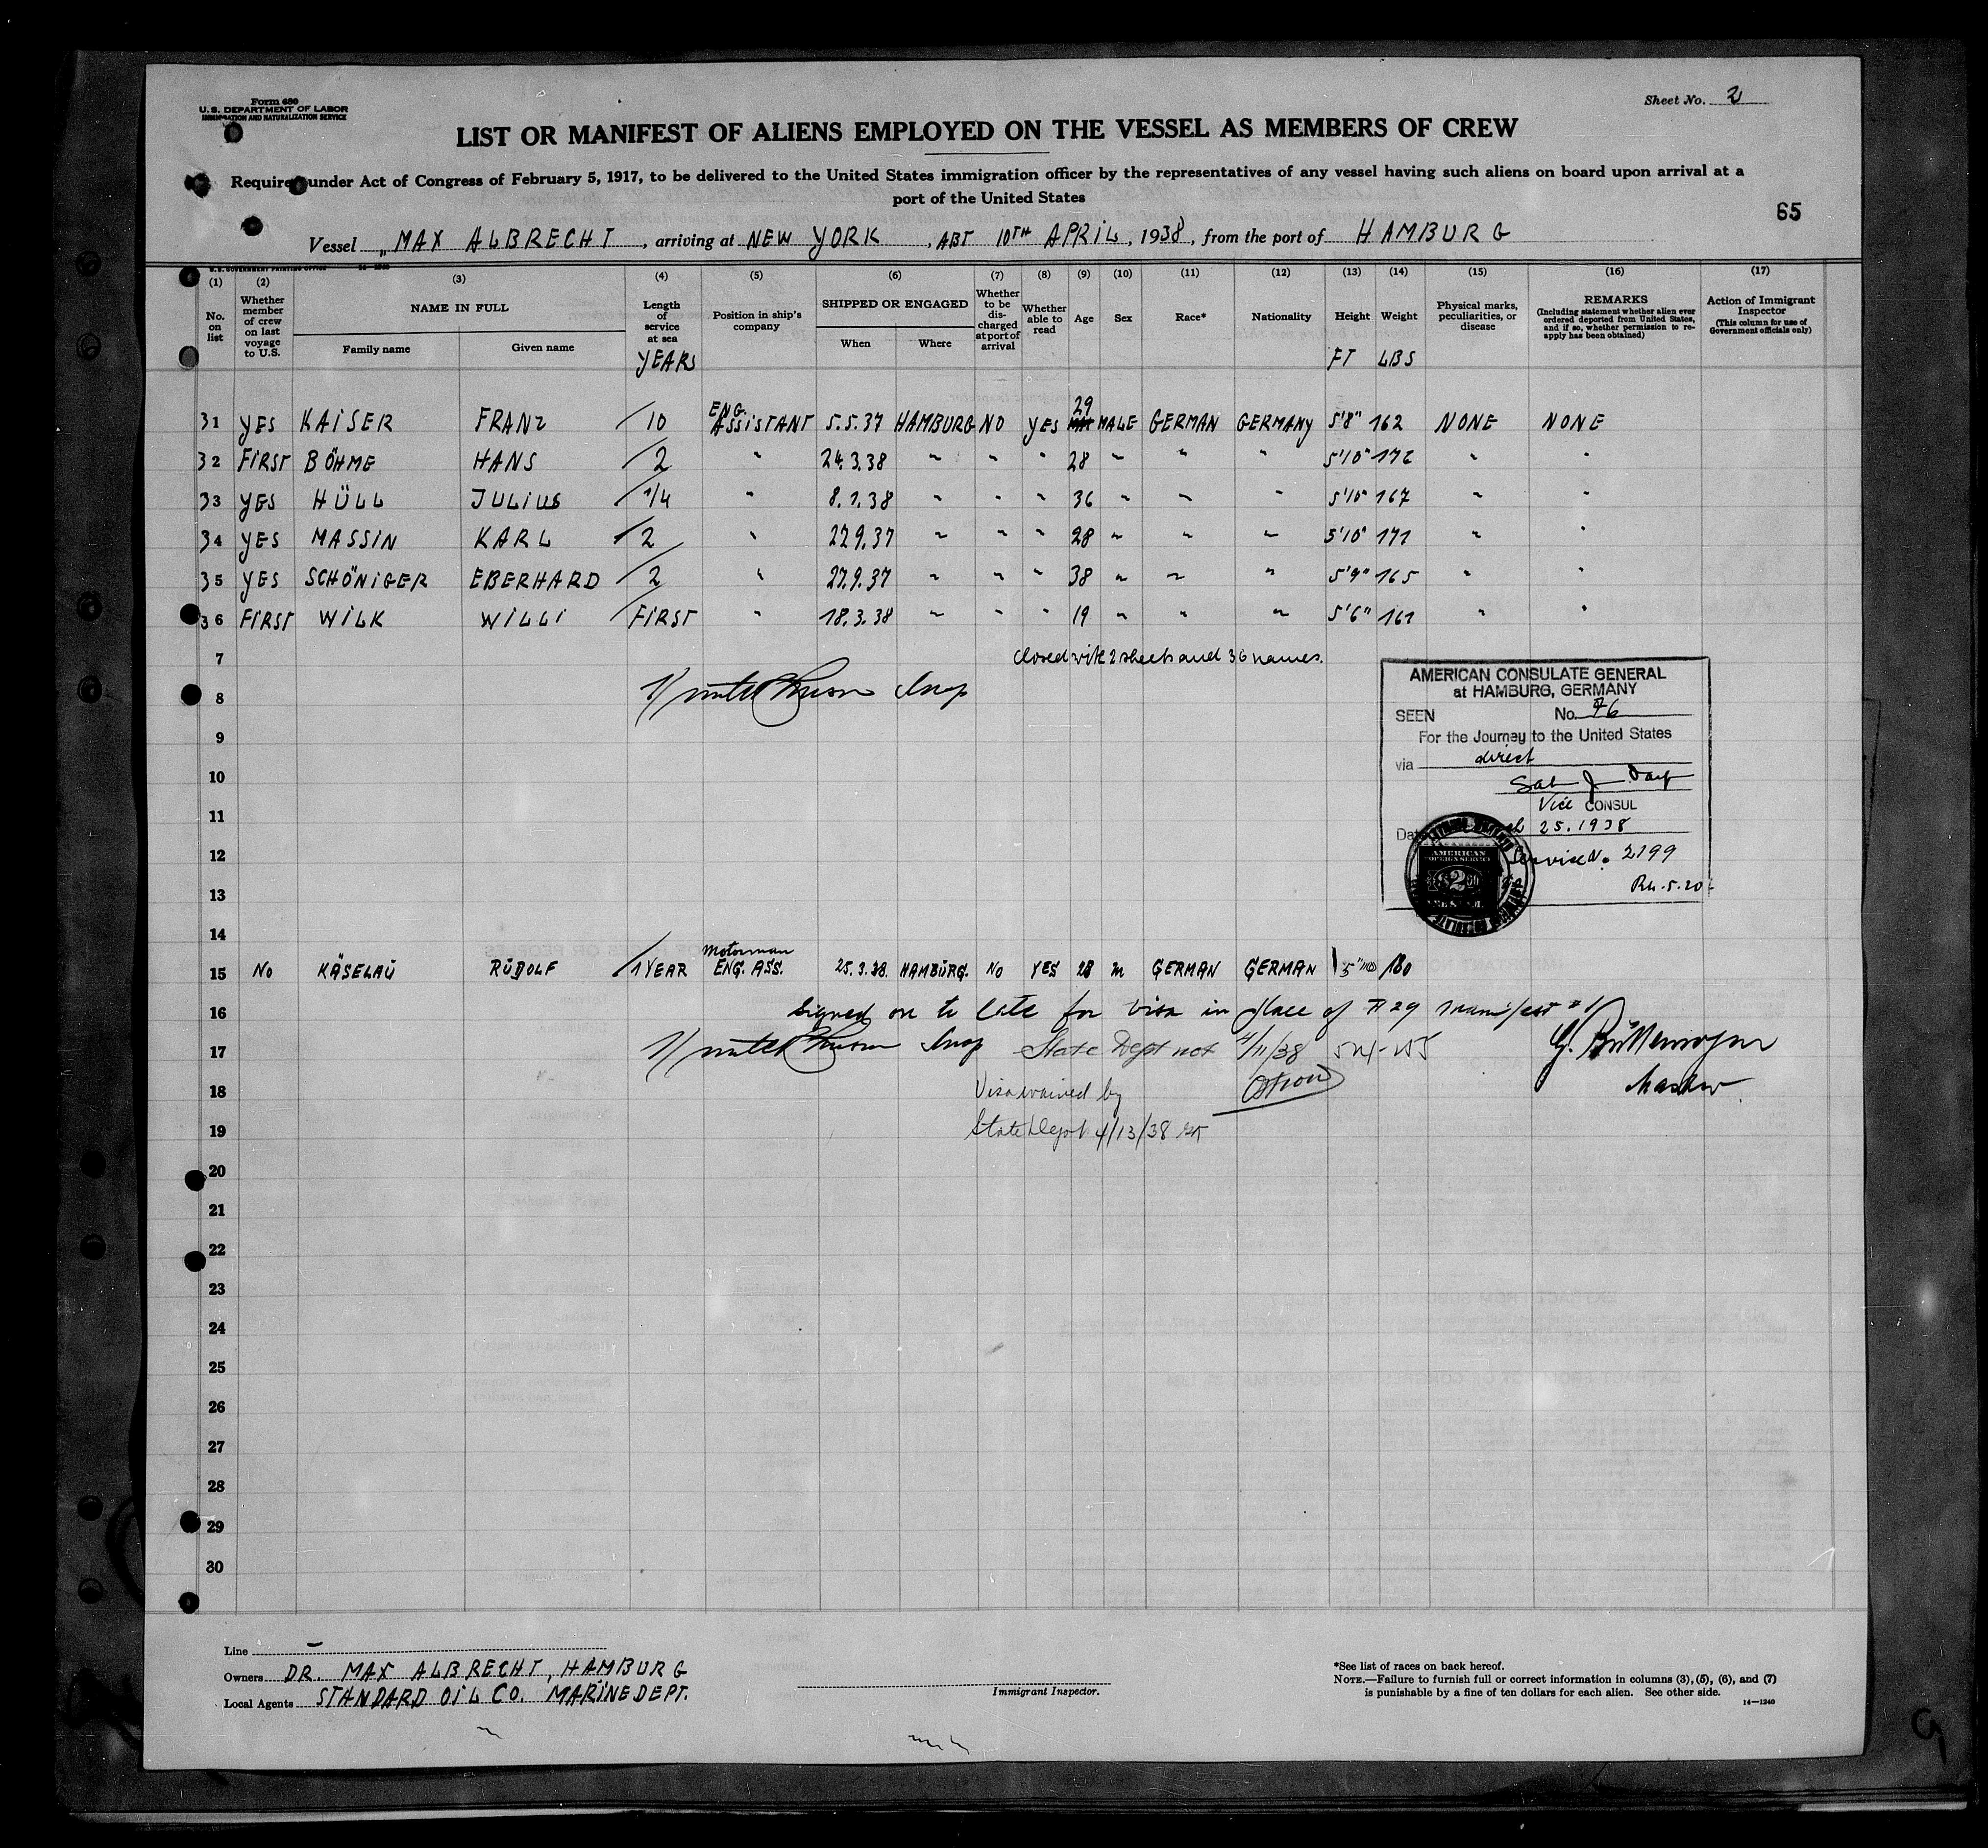 Form 680
U. S. DEPARTMENT OF LABOR
IMMIGRATION AND NATURALIZATION SERVICE
Sheet No. 2
LIST OR MANIFEST OF ALIENS EMPLOYED ON THE VESSEL AS MEMBERS OF CREW
Required under Act of Congress of February 5, 1917, to be delivered to the United States immigration officer by the representatives of any vessel having such aliens on board upon arrival at a
port of the United States
65
Vessel „MAX ALBRECHT, arriving at NEW YORK, ABT 10TH APRIL, 1938, from the port of HAMBURG
U. S. GOVERNMENT PRINTING OFFICE 14—1240
(1) (2) (3) (4) (5) (6) (7) (8) (9) (10) (11) (12) (13) (14) (15) (16) (17)
No. on list
Whether member of crew on last voyage to U.S.
NAME IN FULL
Family name
Given name
Length of service at sea
YEARS
Position in ship's company
SHIPPED OR ENGAGED
When
Where
Whether to be discharged at port of arrival
Whether able to read
Age
Sex
Race*
Nationality
Height
FT
Weight
LBS
Physical marks, peculiarities, or disease
REMARKS
(Including statement whether alien ever ordered deported from United States, and if so, whether permission to re-apply has been obtained)
Action of Immigrant Inspector
(This column for use of Government officials only)
31 YES KAISER FRANZ 10 ENG. ASSISTANT 5.5.37 HAMBURG NO YES 29 MALE GERMAN GERMANY 5'8" 162 NONE NONE
32 FIRST BÖHME HANS 2 " 24.3.38 " " " 28 " " " 5'10" 176 " "
33 YES HÜLL JULIUS 1/4 " 8.1.38 " " " 36 " " " 5'10" 167 " "
34 YES MASSIN KARL 2 " 22.9.37 " " " 28 " " " 5'10" 171 " "
35 YES SCHÖNIGER EBERHARD 2 " 27.9.37 " " " 38 " " " 5'9" 165 " "
36 FIRST WILK WILLI FIRST " 18.3.38 " " " 19 " " " 5'6" 161 " "
7 closed with 2 sheets and 36 names.
8
AMERICAN CONSULATE GENERAL
at HAMBURG, GERMANY
SEEN No. 76
For the Journey to the United States
via direct
Vice CONSUL
Date 25.1938
Service No. 2199
AMERICAN
FOREIGN SERVICE
$2
9
10
11
12
13
14
15 NO KÄSELAU RUDOLF 1 YEAR Motorman ENG. ASS. 25.3.38. HAMBURG. NO YES 28 m GERMAN GERMAN 5" 180
16 Signed on to late for visa in place of #29 manifest #1
17 State Dept not 4/11/38
Master
18 Visa waived by
19 State Dept. 4/13/38
20
21
22
23
24
25
26
27
28
29
30
Line —
Owners DR. MAX ALBRECHT, HAMBURG
Local Agents STANDARD OIL CO. MARINE DEPT.
Immigrant Inspector.
*See list of races on back hereof.
NOTE.—Failure to furnish full or correct information in columns (3), (5), (6), and (7)
is punishable by a fine of ten dollars for each alien. See other side.
14—1240